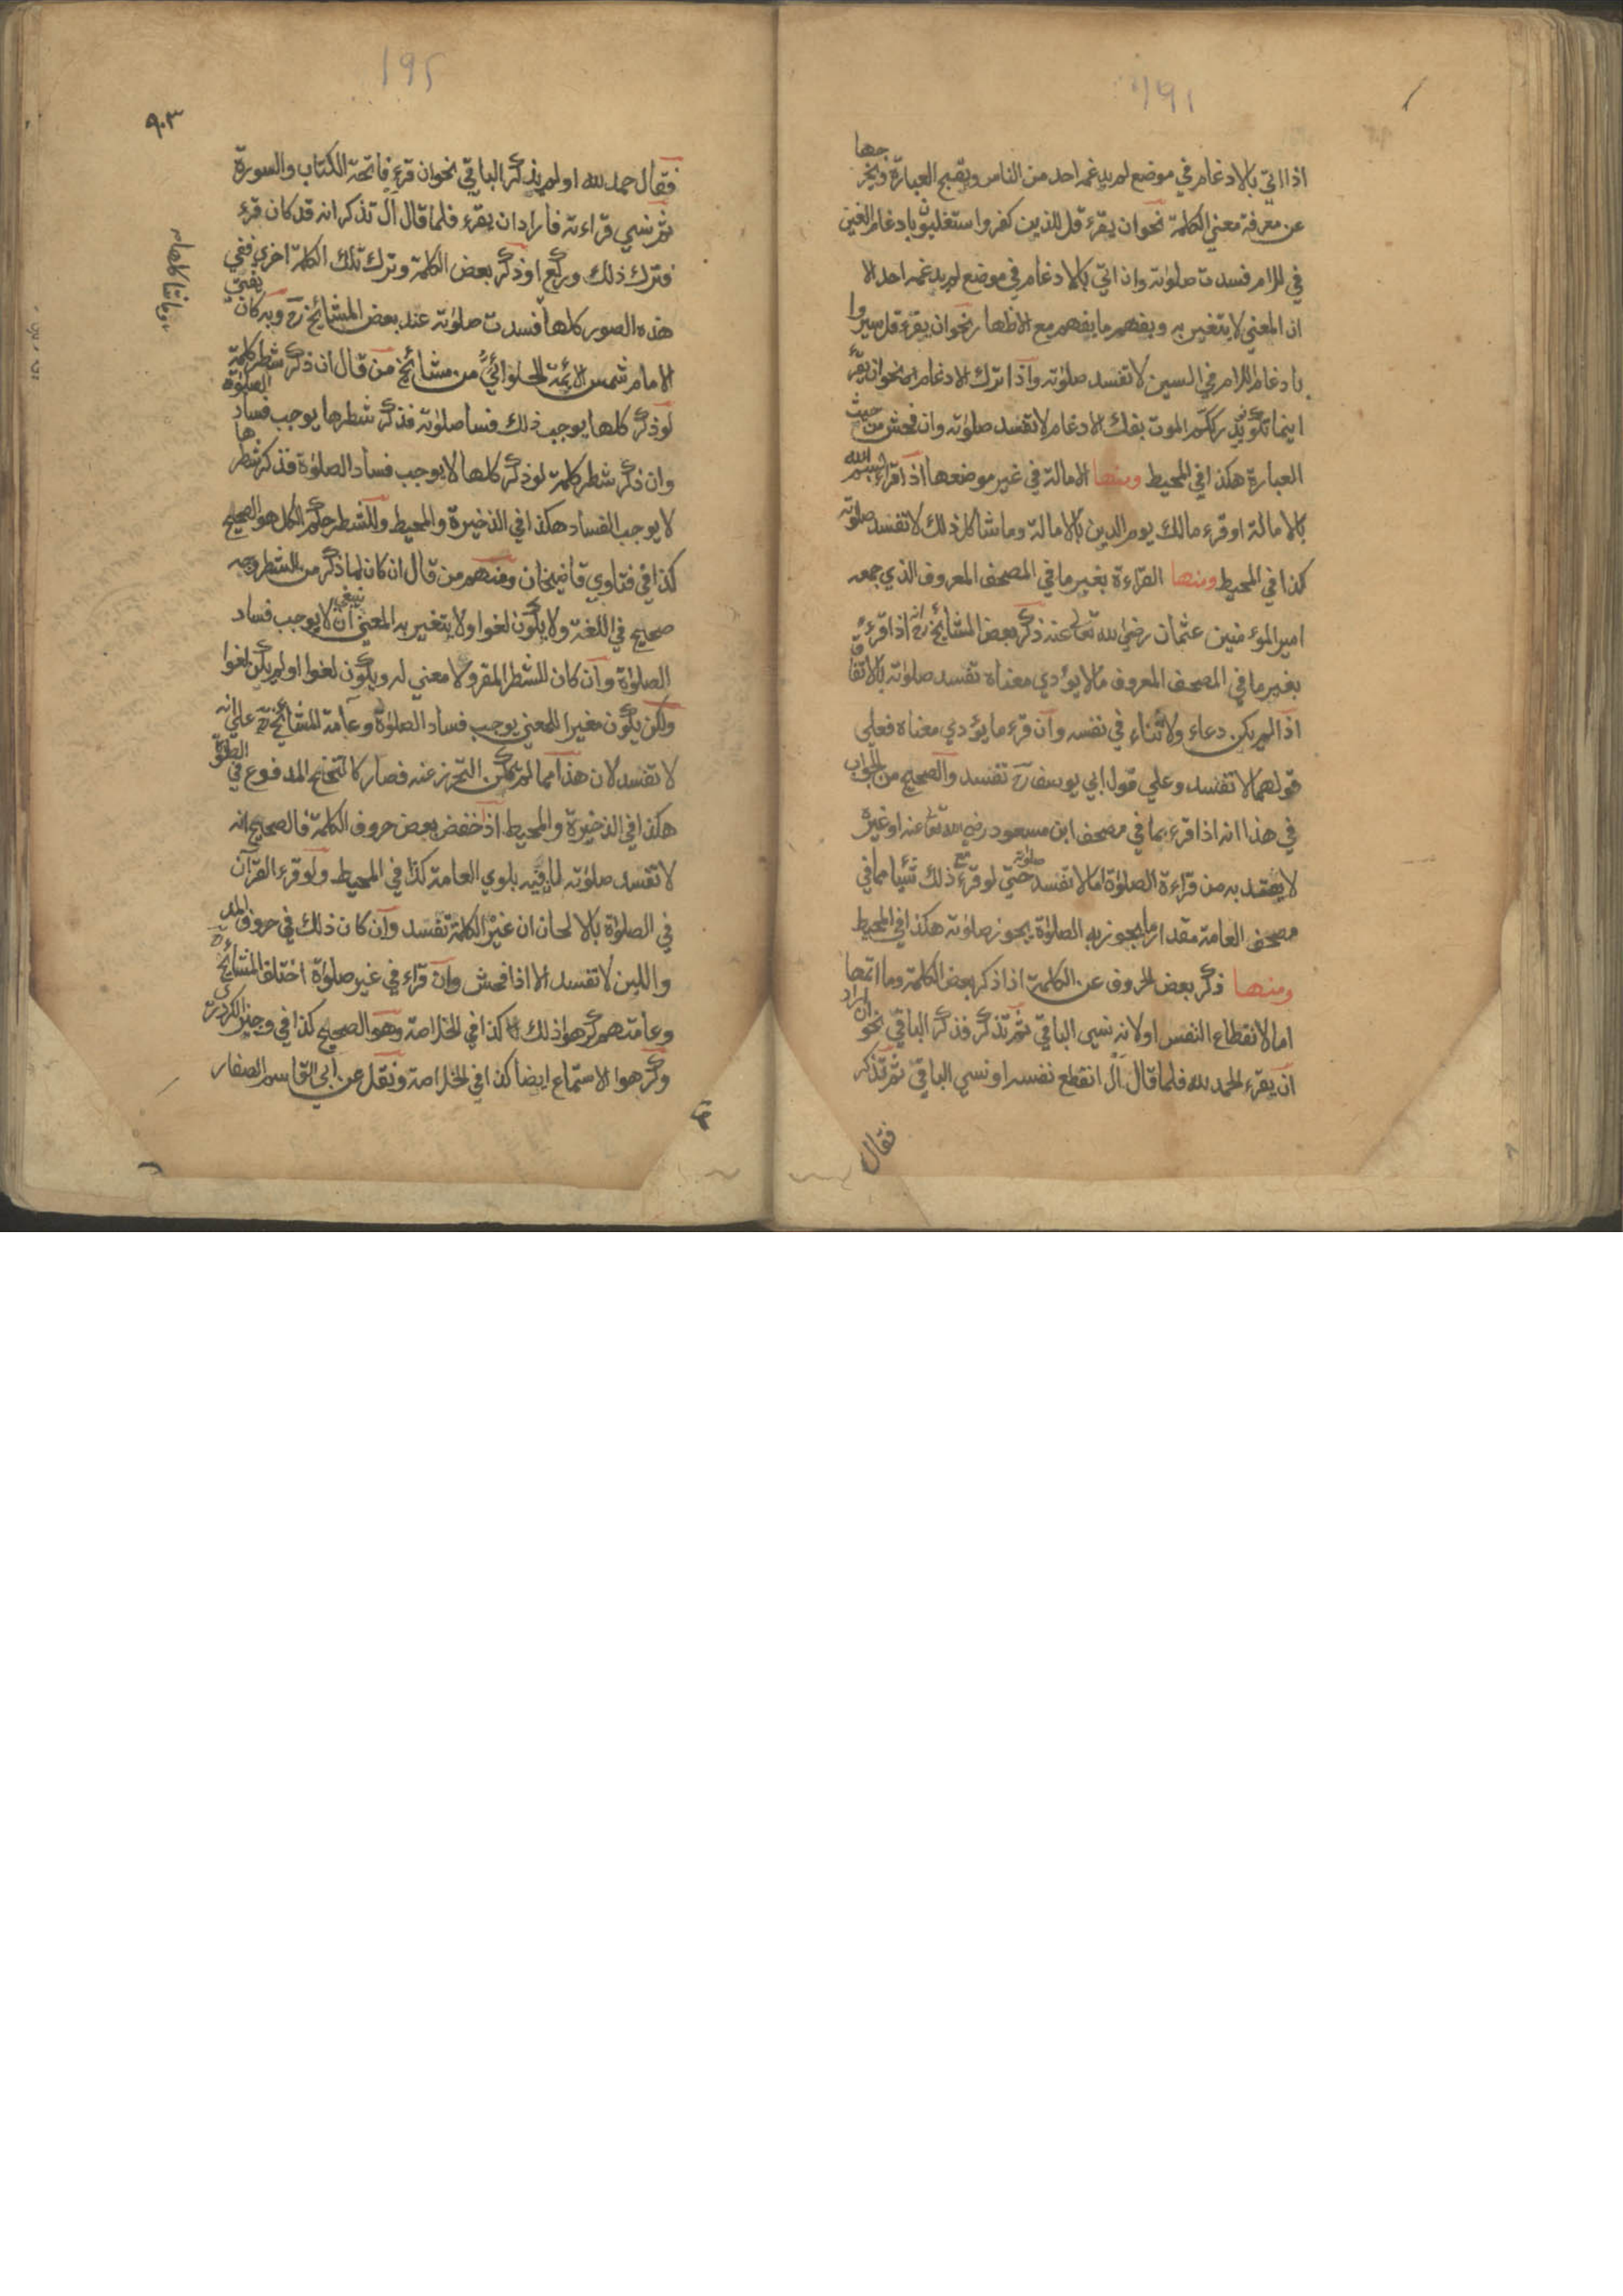 اذا اتي بالادغام في موضع لم يدغمه احد من الناس ويقبح العبارة ويخرجها
عن معرفة معني الكلمة نحو ان يقرء قل للذين كفروا ستغلبون بادغام الغين
في اللام فسدت صلوته وان اتي بالادغام في موضع لم يدغمه احد الا
ان المعني لا يتغير به ويفهم ما يفهم مع الاظهار نحو ان يقرء قل سيروا
بادغام اللام في السين لا تفسد صلوته واذا ترك الادغام نحو ان يقرء
اينما تكونوا يدرككم الموت بفك الادغام لا تفسد صلوته وان فحش من حيث
العبارة هكذا في المحيط ومنها الامالة في غير موضعها اذا قرء بسم الله
بالامالة او قرء مالك يوم الدين بالامالة وما شاكل ذلك لا تفسد صلوته
كذا في المحيط ومنها القراءة بغير ما في المصحف المعروف الذي جمعه
امير المؤمنين عثمان رضي الله تعالي عنه ذكر بعض المشائخ رح انه اذا قرء
بغير ما في المصحف المعروف ما لا يؤدي معناه تفسد صلوته بالاتفاق
اذا لم يكن دعاء ولا ثناء في نفسه وان قرء ما يؤدي معناه فعلي
قولهما لا تفسد وعلي قول ابي يوسف رح تفسد والصحيح من الجواب
في هذا انه اذا قرء بما في مصحف ابن مسعود رضي الله تعا عنه او غيره
لا يعتد به من قراءة الصلوة اما لا تفسد صلوته حتي لو قرء مع ذلك شيئا مما في
مصحف العامة مقدار ما يجوز به الصلوة يجوز صلوته هكذا في المحيط
ومنها ذكر بعض الحروف عن الكلمة اذا ذكر بعض الكلمة وما اتمها
اما لانقطاع النفس او لانه نسي الباقي ثم تذكر فذكر الباقي نحو ان اراد
ان يقرء الحمد لله فلما قال ال انقطع نفسه او نسي الباقي ثم تذكر
فقال
٩٠٣
فقال حمد لله او لم يذكر الباقي نحو ان قرء فاتحة الكتاب والسورة
ثم نسي قراءته فاراد ان يقرء فلما قال ال تذكر انه قد كان قرء
فترك ذلك وركع او ذكر بعض الكلمة وترك تلك الكلمة اخري ففي
هذه الصور كلها فسدت صلوته عند بعض المشائخ رح وبه كان يفتي
الامام شمس الائمة الحلوائي من مشائخ من قال ان ذكر شطر كلمة
لو ذكر كلها يوجب ذلك فسا صلوته فذكر شطرها يوجب فساد الصلوة
وان ذكر شطر كلمة لو ذكر كلها لا يوجب فساد الصلوة فذكر شطرها
لا يوجب الفساد هكذا في الذخيرة والمحيط وللشطر حكم الكل هو الصحيح
كذا في فتاوي قاضيخان ومنهم من قال ان كان لما ذكر من الشطر وجه
صحيح في اللغة ولا يكون لغوا ولا يتغير به المعني ينبغي ان لا يوجب فساد
الصلوة وان كان للشطر المقرو لا معني له ويكون لغوا او لم يكن لغوا
ولكن يكون مغيرا للمعني يوجب فساد الصلوة وعامة المشائخ رح علي انه
لا تفسد لان هذا مما لم يمكن التحرز عنه فصار كالتنحنح المدفوع في الصلوة
هكذا في الذخيرة والمحيط اذا خفض بعض حروف الكلمة فالصحيح انه
لا تفسد صلوته لما فيه بلوي العامة كذا في المحيط ولو قرء القرآن
في الصلوة بالالحان ان غير الكلمة تفسد وان كان ذلك في حروف المد
واللين لا تفسد الا اذا فحش وان قراء في غير صلوة اختلف المشائخ رح
وعامتهم كرهوا ذلك كذا في الخلاصة وهو الصحيح كذا في وجيز الكردري
وكرهوا الاستماع ايضا كذا في الخلاصة ونقل عن ابي القاسم الصفار